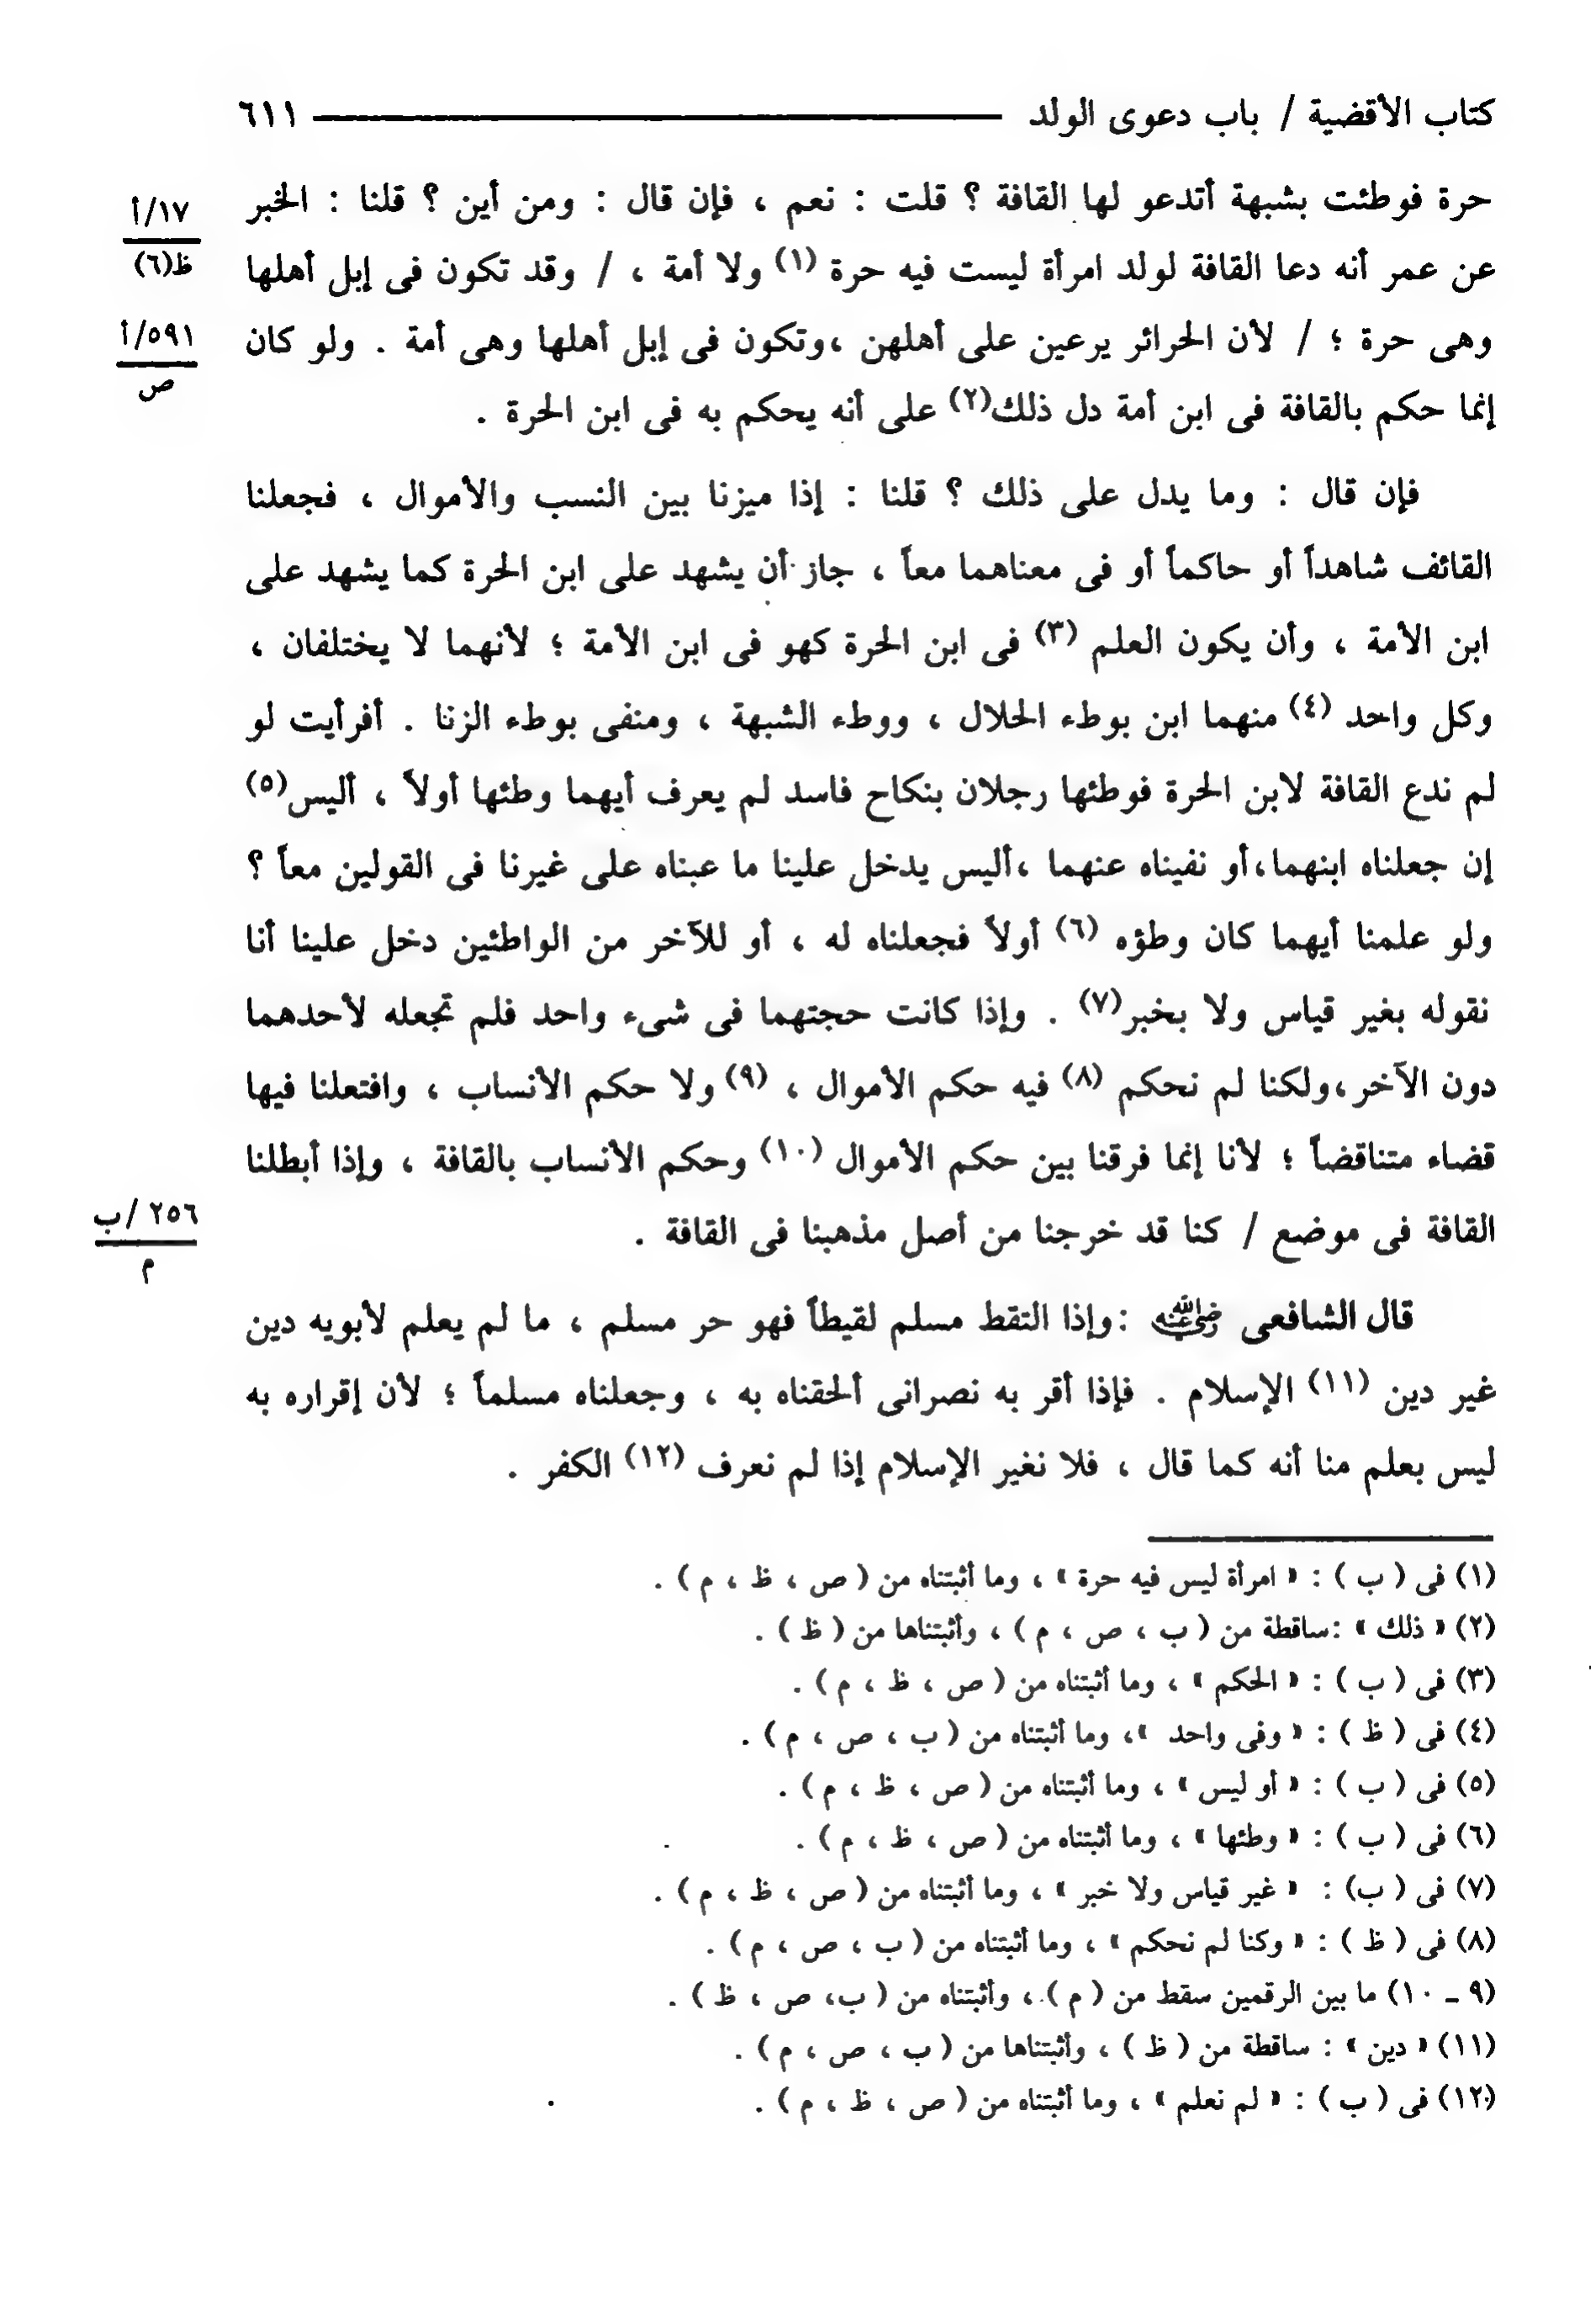 كتاب الأقضية / باب دعوى الولد ــــــــــــــــــــ ٦١١
حرة فوطئت بشبهة أتدعو لها القافة ؟ قلت : نعم ، فإن قال : ومن أين ؟ قلنا : الخبر
١٧/أ
ظ(٦)
عن عمر أنه دعا القافة لولد امرأة ليست فيه حرة (١) ولا أمة ، / وقد تكون فى إبل أهلها
وهى حرة ؛ / لأن الحرائر يرعين على أهلهن ،وتكون فى إبل أهلها وهى أمة . ولو كان
٥٩١/أ
ص
إنما حكم بالقافة فى ابن أمة دل ذلك(٢) على أنه يحكم به فى ابن الحرة .
فإن قال : وما يدل على ذلك ؟ قلنا : إذا ميزنا بين النسب والأموال ، فجعلنا
القائف شاهداً أو حاكماً أو فى معناهما معاً ، جاز أن يشهد على ابن الحرة كما يشهد على
ابن الأمة ، وأن يكون العلم (٣) فى ابن الحرة كهو فى ابن الأمة ؛ لأنهما لا يختلفان ،
وكل واحد (٤) منهما ابن بوطء الحلال ، ووطء الشبهة ، ومنفى بوطء الزنا . أفرأيت لو
لم ندع القافة لابن الحرة فوطئها رجلان بنكاح فاسد لم يعرف أيهما وطئها أولاً ، أليس(٥)
إن جعلناه ابنهما،أو نفيناه عنهما ،أليس يدخل علينا ما عبناه على غيرنا فى القولين معاً ؟
ولو علمنا أيهما كان وطؤه (٦) أولاً فجعلناه له ، أو للآخر من الواطئين دخل علينا أنا
نقوله بغير قياس ولا بخبر(٧) . وإذا كانت حجتهما فى شىء واحد فلم تجعله لأحدهما
دون الآخر،ولكنا لم نحكم (٨) فيه حكم الأموال ، (٩) ولا حكم الأنساب ، وافتعلنا فيها
قضاء متناقضاً ؛ لأنا إنما فرقنا بين حكم الأموال (١٠) وحكم الأنساب بالقافة ، وإذا أبطلنا
القافة فى موضع / كنا قد خرجنا من أصل مذهبنا فى القافة .
٢٥٦ /ب
م
قال الشافعى رضي الله عنه :وإذا التقط مسلم لقيطاً فهو حر مسلم ، ما لم يعلم لأبويه دين
غير دين (١١) الإسلام . فإذا أقر به نصرانى ألحقناه به ، وجعلناه مسلماً ؛ لأن إقراره به
ليس بعلم منا أنه كما قال ، فلا نغير الإسلام إذا لم نعرف (١٢) الكفر .
(١) فى ( ب ) : « امرأة ليس فيه حرة » ، وما أثبتناه من ( ص ، ظ ، م ) .
(٢) « ذلك » :ساقطة من ( ب ، ص ، م ) ، وأثبتناها من ( ظ ) .
(٣) فى ( ب ) : « الحكم » ، وما أثبتناه من ( ص ، ظ ، م ) .
(٤) فى ( ظ ) : « وفى واحد »، وما أثبتناه من ( ب ، ص ، م ) .
(٥) فى ( ب ) : « أو ليس » ، وما أثبتناه من ( ص ، ظ ، م ) .
(٦) فى ( ب ) : « وطئها » ، وما أثبتناه من ( ص ، ظ ، م ) .
(٧) فى ( ب) : « غير قياس ولا خبر » ، وما أثبتناه من ( ص ، ظ ، م ) .
(٨) فى ( ظ ) : « وكنا لم نحكم » ، وما أثبتناه من ( ب ، ص ، م ) .
(٩ ـ ١٠) ما بين الرقمين سقط من ( م ) ، وأثبتناه من ( ب، ص ، ظ ) .
(١١) « دين » : ساقطة من ( ظ ) ، وأثبتناها من ( ب ، ص ، م ) .
(١٢) فى ( ب ) : « لم نعلم » ، وما أثبتناه من ( ص ، ظ ، م ) .